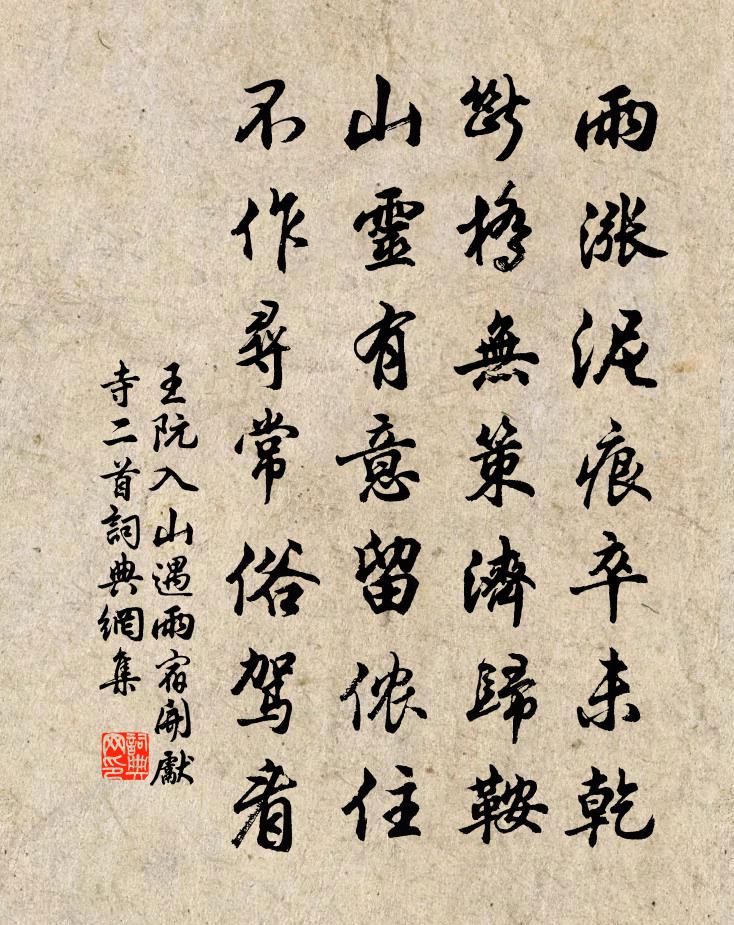 雨漲泥痕卒未乾
斷橋無策濟歸鞍
山靈有意留儂住
不作尋常俗駕看
王阮入山遇雨宿開獻
寺二首詞典網集
詞典
网印